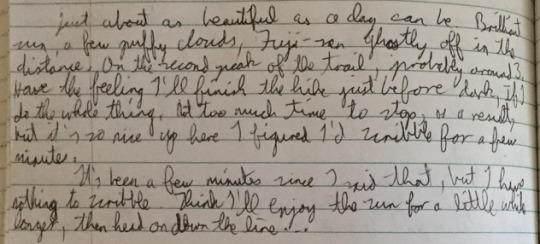 just about as beautiful as a day can be. Brilliant
sun, a few puffy clouds, Fuji-san ghostly off in the
distance. On the second peak of the trail, probably around 3.
Have the feeling I'll finish the hike just before dark, if I
do the whole thing. Not too much time to stop, as a result,
but it's so nice up here I figured I'd scribble for a few
minutes.
It's been a few minutes since I said that, but I have
nothing to scribble. Think I'll enjoy the sun for a little while
longer, then head on down the line....